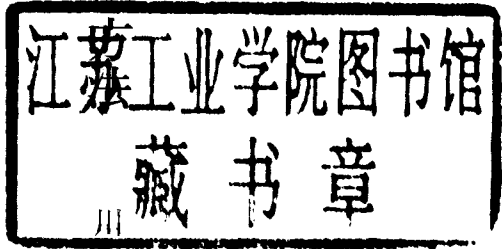 江苏工业学院图书馆
藏书章
川